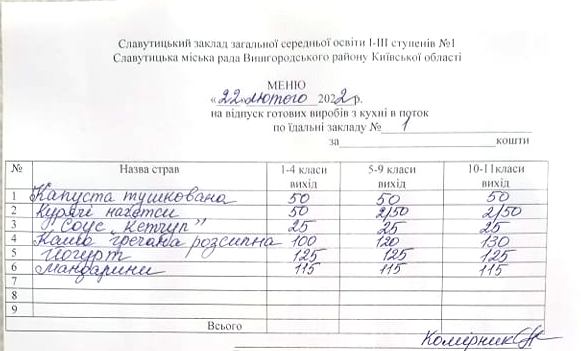 Славутицький заклад загальної середньої освіти І-ІІІ ступенів №1
Славутицька міська рада Вишгородського району Київської області
МЕНЮ
«22» лютого 2022р.
на відпуск готових виробів з кухні в поток
по їдальні закладу № 1
за кошти
№ Назва страв 1-4 класи вихід 5-9 класи вихід 10-11класи вихід
1 Капуста тушкована 50 50 50
2 Курячі нагетси 50 2/50 2/50
3 Соус „Кетчуп" 25 25 25
4 Каша гречана розсипна 100 120 130
5 Йогурт 125 125 125
6 Мандарини 115 115 115
7
8
9
Всього
Комірник